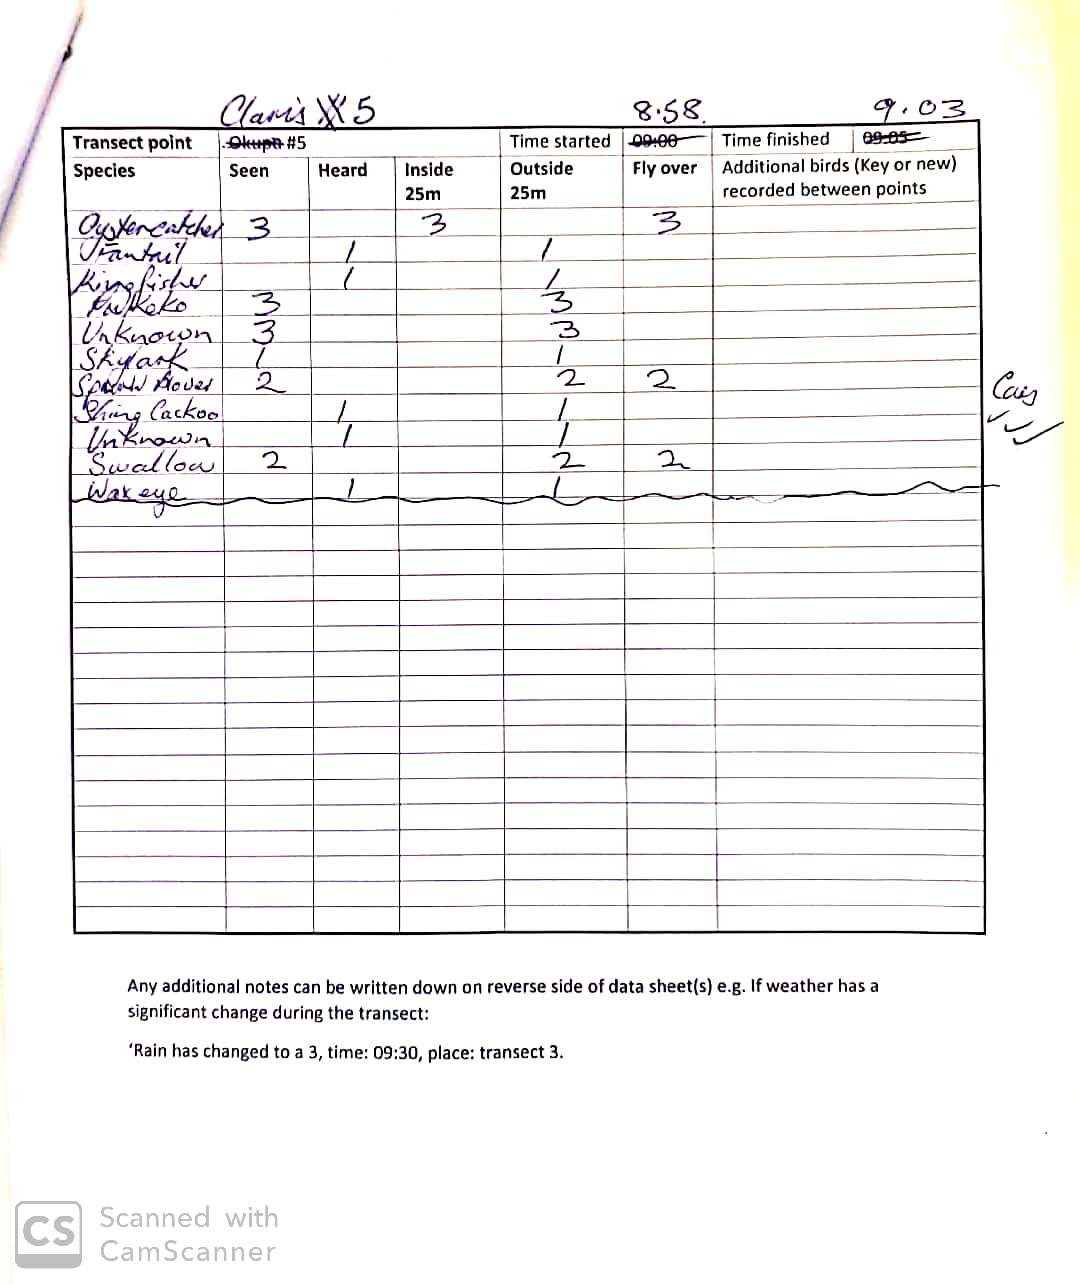 Claris #5 8.58. 9.03
Transect point Okupu #5 Time started 09:00 Time finished 09:05
Species Seen Heard Inside 25m Outside 25m Fly over Additional birds (Key or new) recorded between points
Oystercatcher 3 3 3
Fantail 1 1
Kingfisher 1 1
Pukeko 3 3
Unknown 3 3
Skylark 1 1
Plover 2 2 2
Shing Cackoo 1 1
Unknown 1 1
Swallow 2 2 2
Wax eye 1 1
Any additional notes can be written down on reverse side of data sheet(s) e.g. If weather has a
significant change during the transect:
‘Rain has changed to a 3, time: 09:30, place: transect 3.
CS Scanned with
CamScanner